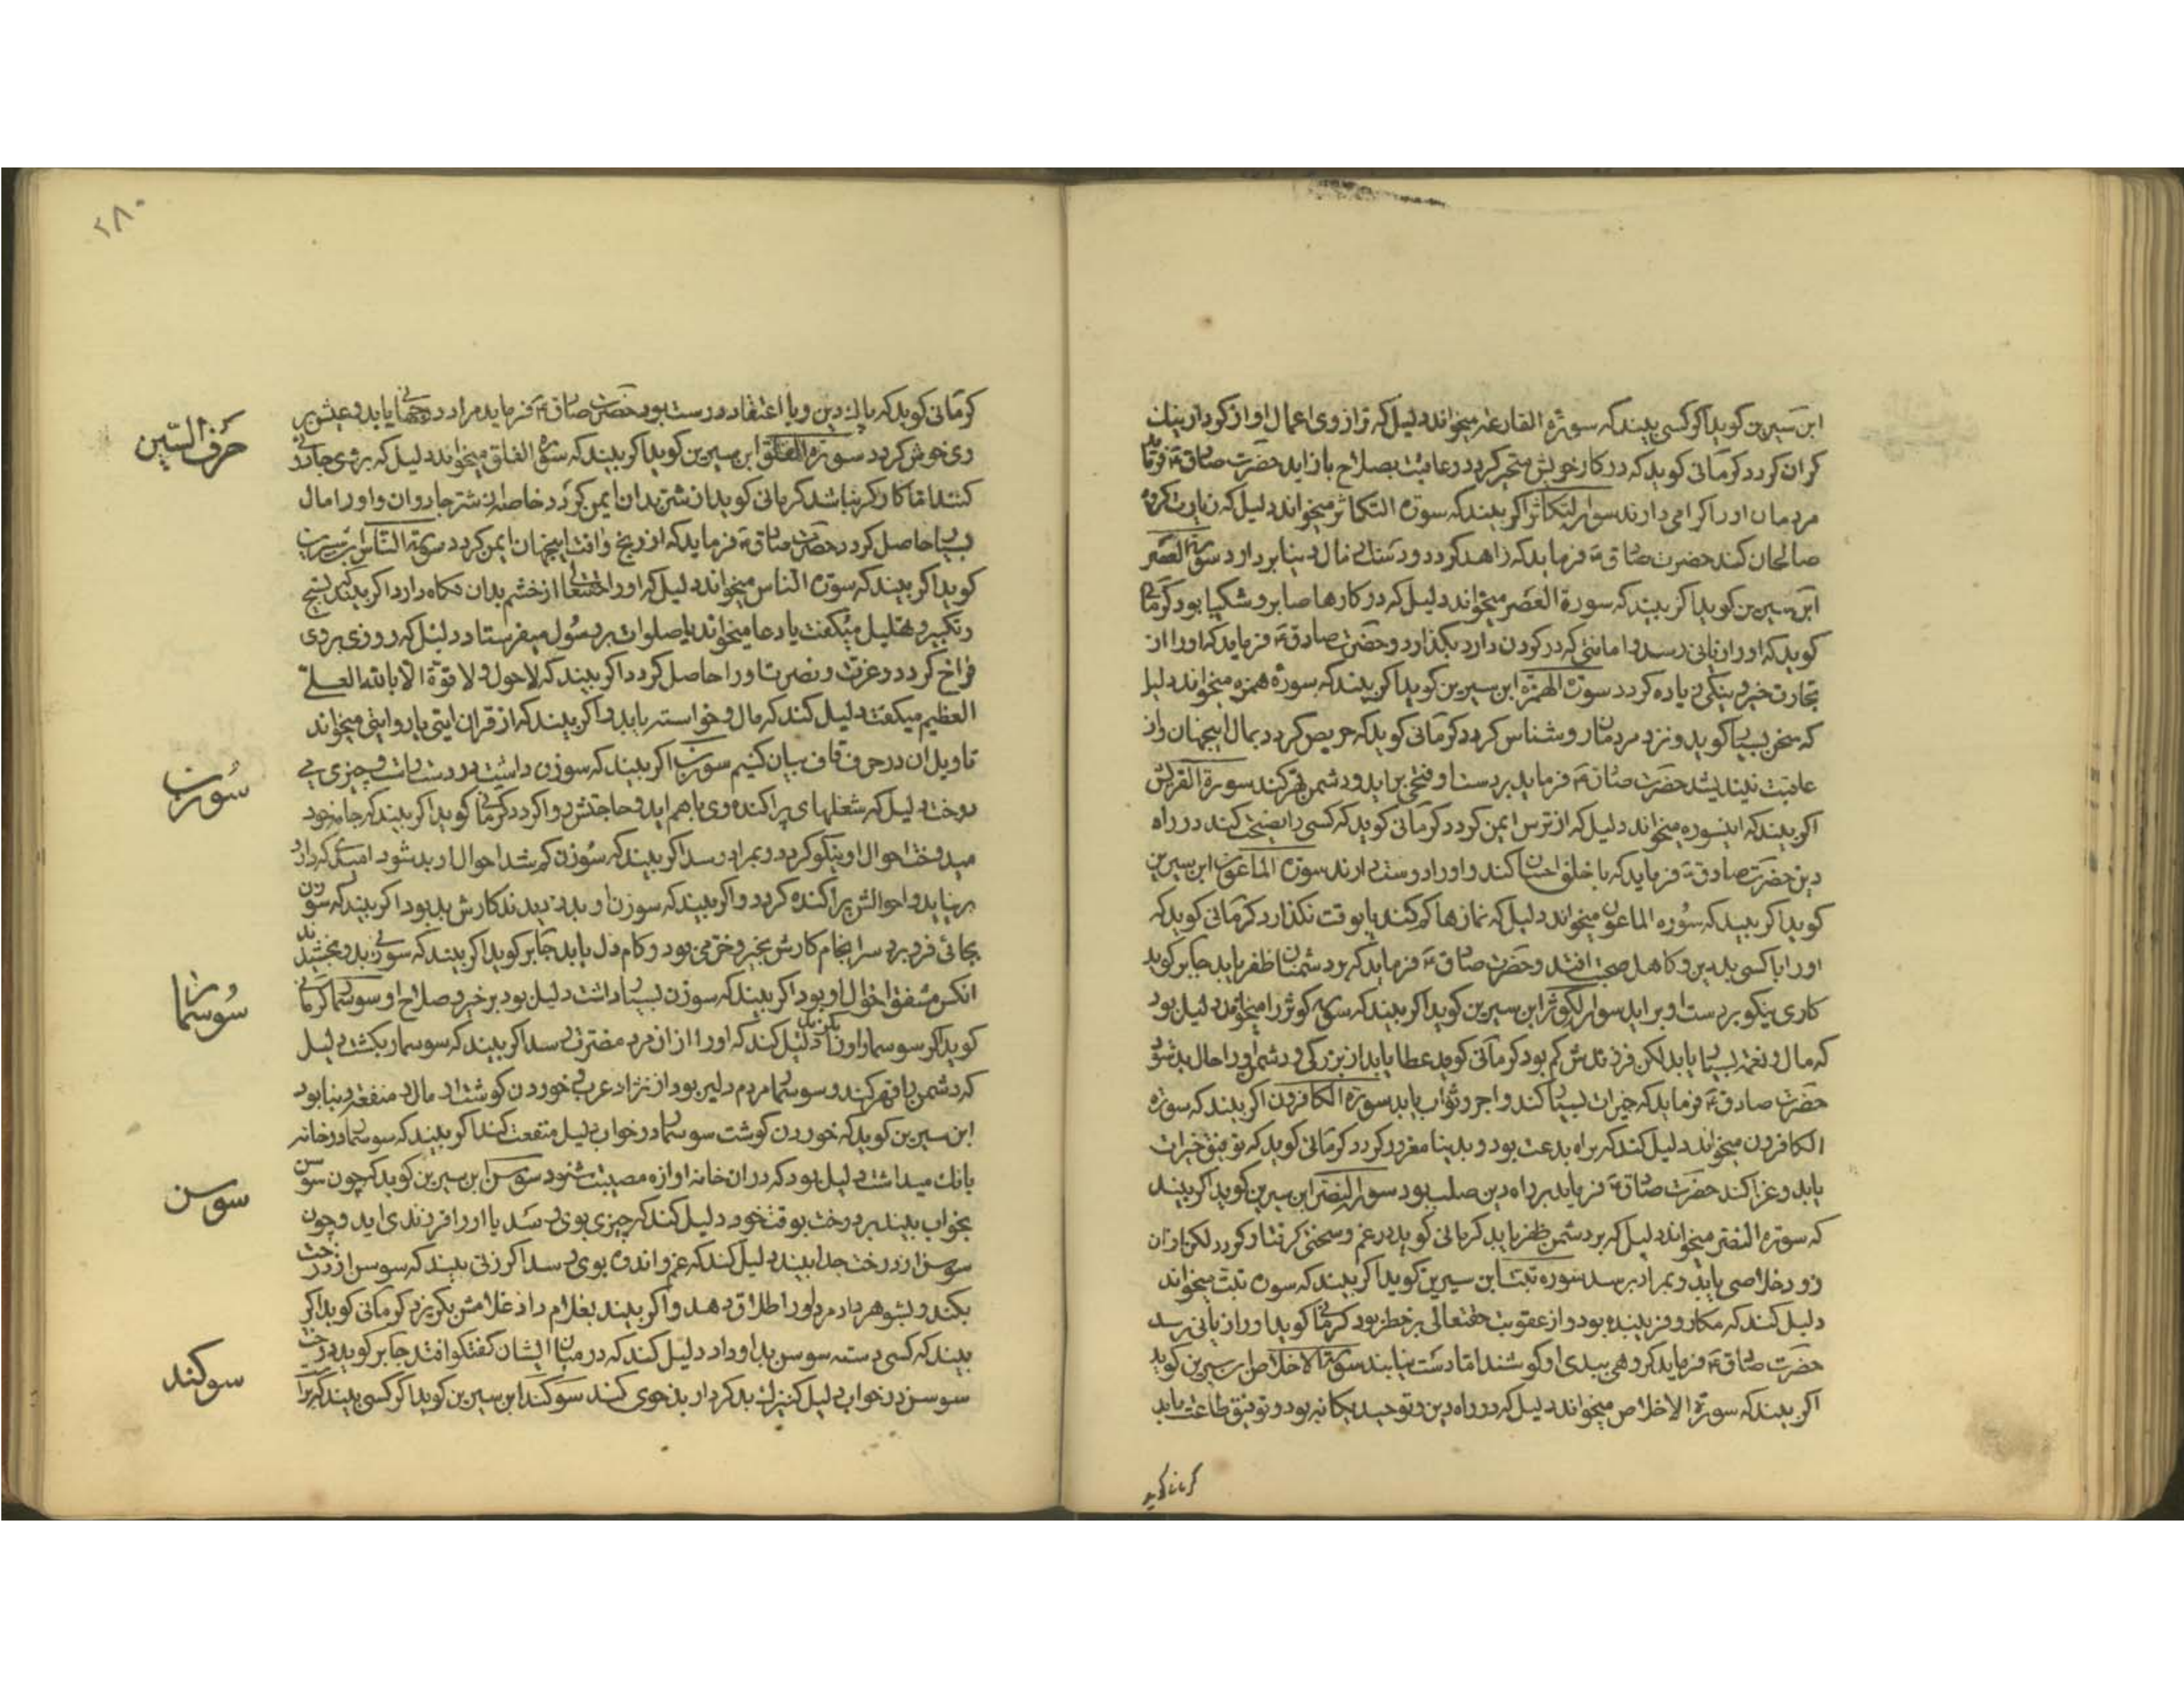 ابن سیرین کوید اکر کسی بیند که سورة القارعه میخواند دلیل که ترازوی اعمال او از کردار نیک
کران کردد کرمانی کوید که در کار خویش متحیر کردد و عاقبت بصلاح باز اید حضرت صادق ع فرماید
مردمان او را کرامی دارند سورة التکاثر اکر بیند که سورة التکاثر میخواند دلیل که زیارت کردن
صالحان کند حضرت صادق ع فرماید که زاهد کردد و دست از مال دنیا بردارد سورة العصر
ابن سیرین کوید اکر بیند که سورة العصر میخواند دلیل که در کارها صابر و شکیبا بود کرمانی
کوید که او را زیانی رسد و امانتی که در کردن دارد بکذارد و حضرت صادق ع فرماید که او را از
تجارت خیر و نیکی زیاده کردد سورة الهمزة ابن سیرین کوید اکر بیند که سورۀ همزه میخواند دلیل
که سخن بسیار کوید و نزد مردمان روشناس کردد کرمانی کوید که حریص کردد بمال اینجهان و از
عاقبت نیندیشد حضرت صادق ع فرماید بر دست او فتحی براید و دشمن قهر کند سورة القریش
اکر بیند که اینسوره میخواند دلیل که از ترس ایمن کردد کرمانی کوید که کسی را نصیحت کند در راه
دین حضرت صادق ع فرماید که با خلق احسان کند و او را دوست دارند سورة الماعون ابن سیرین
کوید اکر بیند که سوره الماعون میخواند دلیل که نمازها کم کند یا بوقت نکذارد کرمانی کوید که
او را با کسی بد دین و کاهل صحبت افتد و حضرت صادق ع فرماید که بر دشمنان ظفر یابد جابر کوید
کاری نیکو بر دست او براید سورة الکوثر ابن سیرین کوید اکر بیند که سورة کوثر را میخواند دلیل بود
که مال و نعمت بسیار یابد لکن فرزندش کم بود کرمانی کوید عطا یابد از بزرکی و دشمن او را حال بد شود
حضرت صادق ع فرماید که خیرات بسیار کند و اجر و ثواب یابد سورة الکافرون اکر بیند که سورة
الکافرون میخواند دلیل کند که براه بدعت بود و بدنیا مغرور کردد کرمانی کوید که توفیق خیرات
یابد و غزا کند حضرت صادق ع فرماید براه دین صلب بود سورة النصر ابن سیرین کوید اکر بیند
که سورة النصر میخواند دلیل که بر دشمن ظفر یابد کرمانی کوید در غم و سختی کرفتار کردد لکن از ان
زود خلاصی یابد و بمراد برسد سوره تبت ابن سیرین کوید اکر بیند که سورة تبت میخواند
دلیل کند که مکار و فریبنده بود و از عقوبت حقتعالی بر خطر بود کرمانی کوید او را زیانی رسد
حضرت صادق ع فرماید کروهی ببدی او کوشند اما دست نیابند سورة الاخلاص ابن سیرین کوید
اکر بیند که سورة الاخلاص میخواند دلیل که در راه دین و توحید یکانه بود و توفیق طاعت یابد
کرمانی کوید
۲۸۰
کرمانی کوید که پاک دین و با اعتقاد درست بود حضرت صادق ع فرماید مراد دوجهانی یابد و عیش بر
وی خوش کردد سورة الفلق ابن سیرین کوید اکر بیند که سورة الفلق میخواند دلیل که بر وی جادوئی
کنند اما کارکر نباشد کرمانی کوید از شر بدان ایمن کردد خاصه از شر جادوان و او را مال
بسیار حاصل کردد حضرت صادق ع فرماید که از رنج و افت اینجهان ایمن کردد سورة الناس ابن سیرین
کوید اکر بیند که سورة الناس میخواند دلیل که او را حقتعالی از خشم بدان نکاه دارد اکر بیند که تسبیح
و تکبیر و تهلیل میکفت یا دعا میخواند یا صلوات بر رسول میفرستاد دلیل که روزی بر وی
فراخ کردد و عزت و نصرت او را حاصل کردد اکر بیند که لا حول و لا قوة الا بالله العلی
العظیم میکفت دلیل کند که مال و خواسته یابد و اکر بیند که از قران ایتی یا روایتی میخواند
تاویل ان در حرف قاف بیان کنیم سوزن اکر بیند که سوزن داشت و در دست داشت و چیزی می
دوخت دلیل که شغلهای پراکنده وی باهم اید و حاجتش روا کردد کرمانی کوید اکر بیند که جامه خود
میدوخت احوال او نیکو کردد و بمراد رسد اکر بیند که سوزن کم شد احوال او بد شود
برنیاید و احوالش پراکنده کردد و اکر بیند که سوزن او بدزدیدند کارش بد بود اکر بیند که سوزن
بجائی فرو برد سرانجام کارش بخیر و خرمی بود و کام دل یابد جابر کوید اکر بیند که سوزنی بدو بخشیدند
انکس مشفق احوال او بود اکر بیند که سوزن بسیار داشت دلیل بود بر خیر و صلاح او سوسمار کرمانی
کوید اکر سوسمار او را بکزید دلیل کند که او را از ان مرد مضرت رسد اکر بیند که سوسمار بکشت دلیل
که دشمن را قهر کند و سوسمار مردم دلیر بود از نژاد عرب و خوردن کوشت او مال و منفعت دنیا بود
ابن سیرین کوید که خوردن کوشت سوسمار در خواب دلیل منفعت کند اکر بیند که سوسمار در خانه
بانک میداشت دلیل بود که در ان خانه اوازه مصیبت شنود سوسن ابن سیرین کوید که چون سوسن
بخواب بیند بر درخت بوقت خود دلیل کند که چیزی بوی رسد یا او را فرزندی اید و چون
سوسن از درخت جدا بیند دلیل کند که غم و اندوه بوی رسد اکر زنی بیند که سوسن از درخت
بکند و بشوهر داد مرد او را طلاق دهد و اکر بیند بغلام داد غلامش بکریزد کرمانی کوید اکر
بیند که کسی دسته سوسن بدو داد دلیل کند که در میان ایشان کفتکو افتد جابر کوید درخت
سوسن در خواب دلیل کنیزک بدکردار بدخوی کند سوکند ابن سیرین کوید اکر کسی بیند که براست
حرف السین
سوزن
سوسمار
سوسن
سوکند